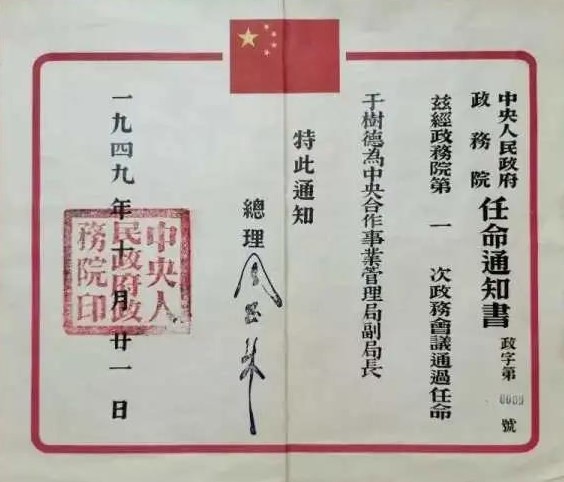 中央人民政府
政務院
任命通知書
政字第 號
茲經政務院第 一 次政務會議通過任命
于樹德為中央合作事業管理局副局長
特此通知
總理 周恩來
一九四九年十月廿一日
中央人
民政府政
務院印